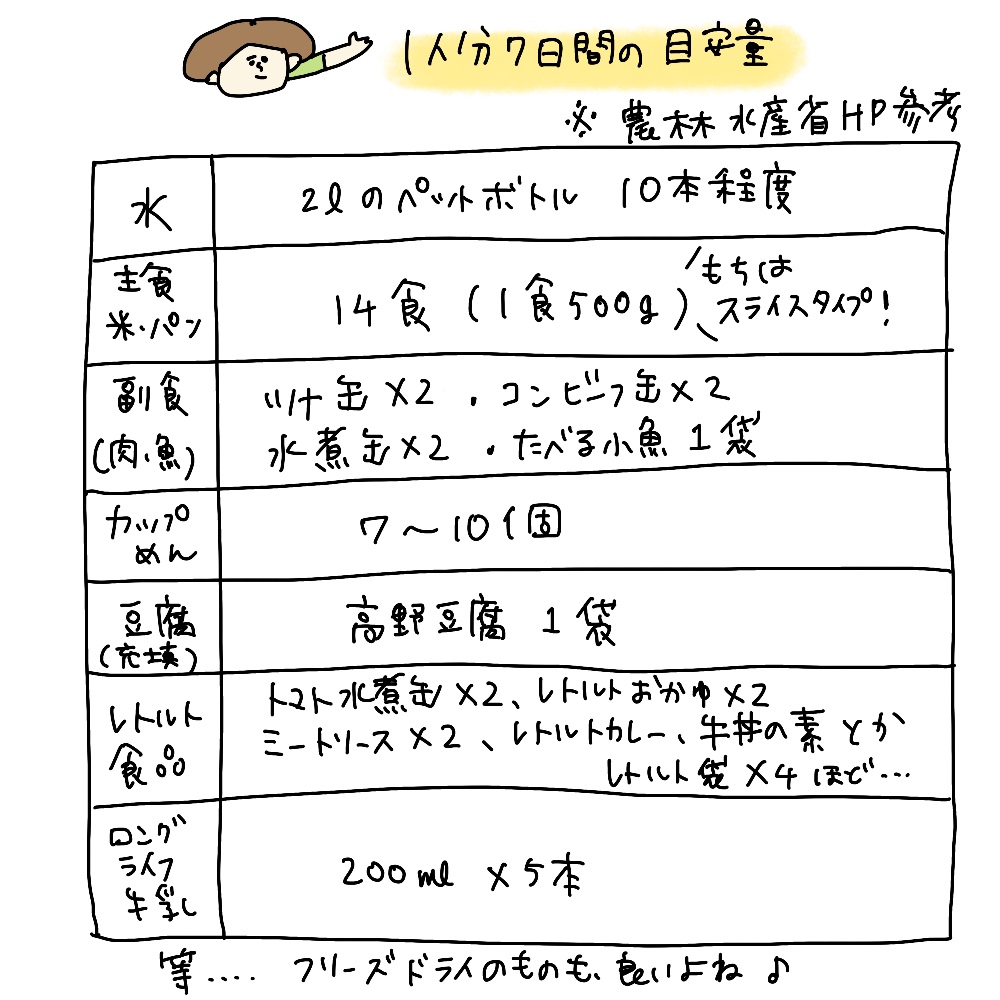 1人分7日間の目安量
※農林水産省HP参考
水
2lのペットボトル 10本程度
主食
米・パン
14食(1食500g)
もちは
スライスタイプ!
副食
(肉、魚)
ツナ缶×2 ・コンビーフ缶×2
水煮缶×2 ・たべる小魚 1袋
カップ
めん
7〜10個
豆腐
(充填)
高野豆腐 1袋
レトルト
食品
トマト水煮缶×2、レトルトおかゆ×2
ミートソース×2、レトルトカレー、牛丼の素とか
レトルト袋×4ほど…
ロング
ライフ
牛乳
200ml ×5本
等…. フリーズドライのものも、良いよね♪